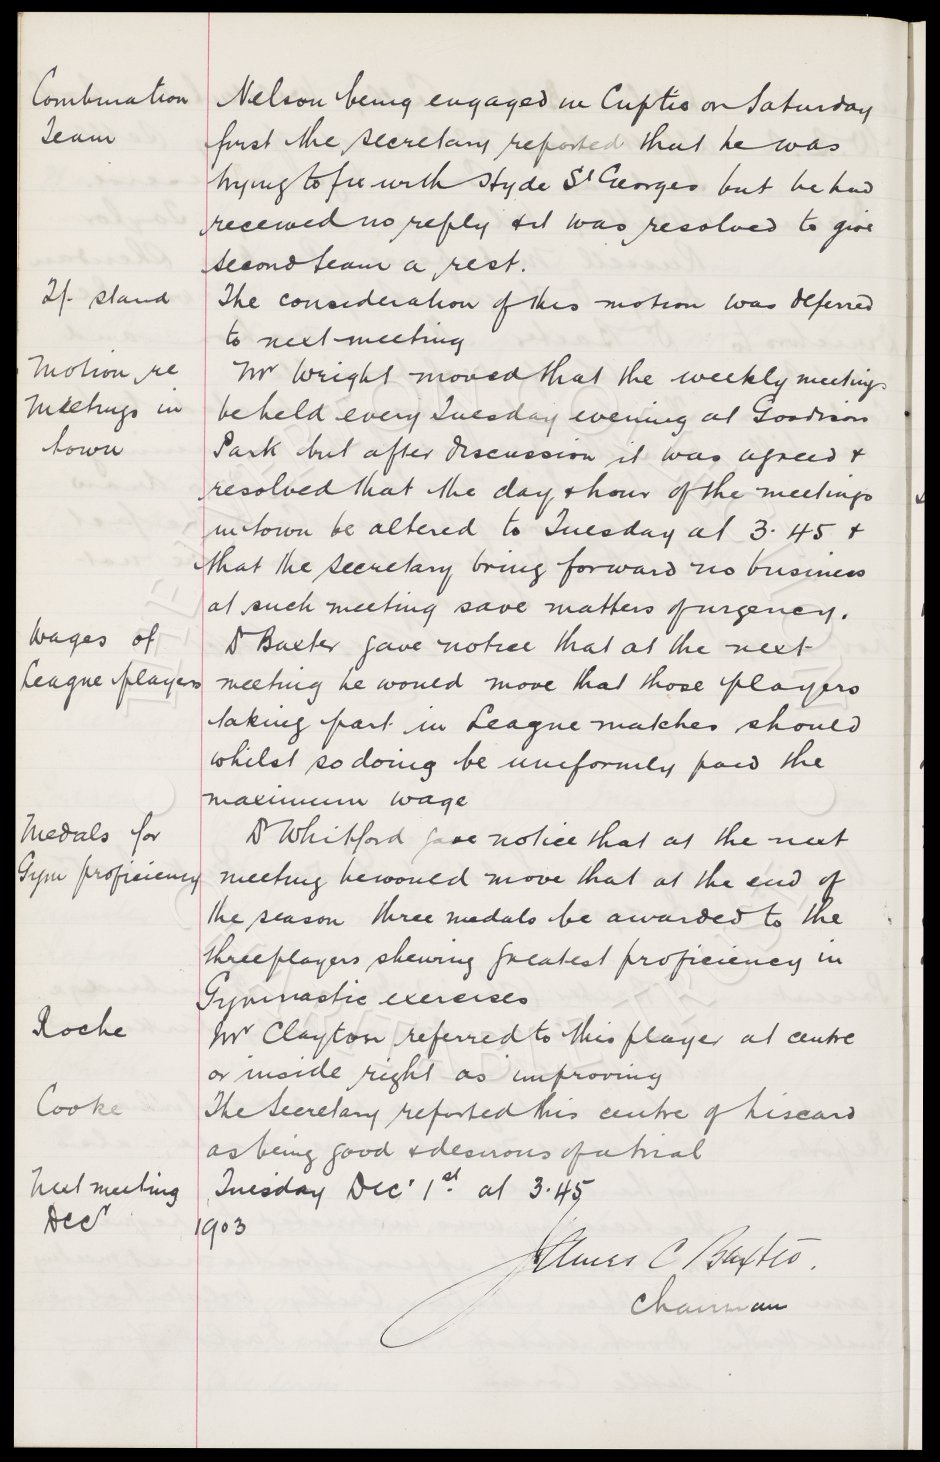 Combination
Team
Nelson being engaged in Cupties on Saturday
first the secretary reported that he was
trying to fix with Hyde St Georges but he had
received no reply & it was resolved to give
second team a rest.
If stand
The consideration of this motion was deferred
to next meeting
Motion re
Meetings in
town
Mr Wright moved that the weekly meetings
be held every Tuesday evening at Goodison
Park but after discussion it was agreed &
resolved that the day & hour of the meetings
in town be altered to Tuesday at 3.45 &
that the secretary bring forward no business
at such meeting save matters of urgency.
Wages of
League players
Dr Baxter gave notice that at the next
meeting he would move that those players
taking part in League matches should
whilst so doing be uniformly paid the
maximum wage
Medals for
Gym proficiency
Dr Whitford gave notice that at the next
meeting he would move that at the end of
the season three medals be awarded to the
three players shewing greatest proficiency in
Gymnastic exercises
Roche
Mr Clayton referred to this player at centre
or inside right as improving
Cooke
The Secretary reported this centre of Liscard
as being good & desirous of a trial
Next meeting
Decr
Tuesday Decr 1st at 3.45
1903
James C Baxter.
Chairman